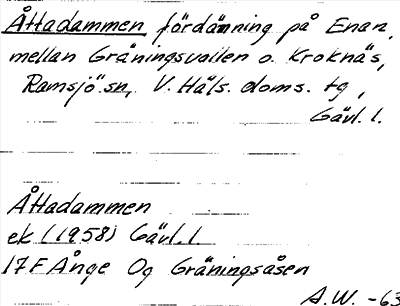 Åttadammen fördämning på Enan,
mellan Gräningsvallen o. Kroknäs,
Ramsjö sn, V. Häls. doms. tg,
Gävl. l.
Åttadammen
ek (1958) Gävl. l.
17 F Ånge Og Gräningsåsen
A.W. -63